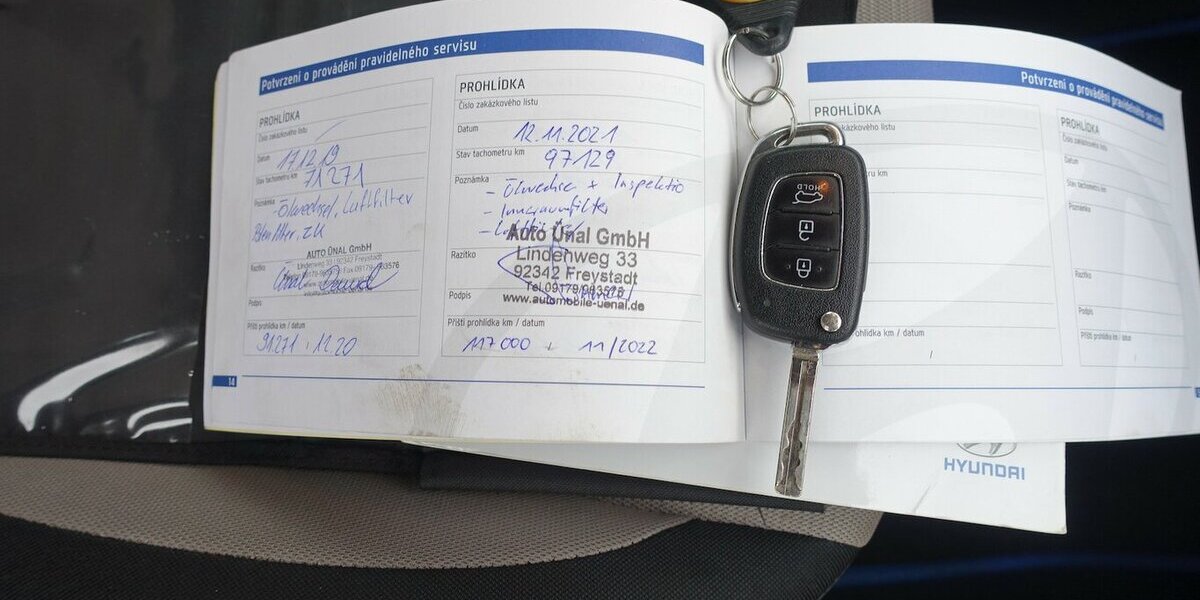 Potvrzení o provádění pravidelného servisu
PROHLÍDKA
Číslo zakázkového listu
Datum
17.12.19
Stav tachometru km
71271
Poznámka
-Ölwechsel, Luftfilter
AUTO ÜNAL GmbH
Lindenweg 33
Razítko
Podpis
Příští prohlídka km / datum
91271 12.20
14
PROHLÍDKA
Číslo zakázkového listu
Datum
12.11.2021
Stav tachometru km
97129
Poznámka
- Ölwechse + Inspektio
- Innraumfilter
Auto Ünal GmbH
Lindenweg 33
92342 Freystadt
Razítko
Tel.09179/963576
Podpis
www.automobile-uenal.de
Příští prohlídka km / datum
117000 11/2022
Potvrzení o provádění pravidelného servisu
PROHLÍDKA
zakázkového listu
km
prohlídka km / datum
PROHLÍDKA
Číslo zakázkového listu
Datum
Stav tachometru km
Poznámka
Razítko
Podpis
Příští prohlídka km / datum
HOLD
HYUNDAI